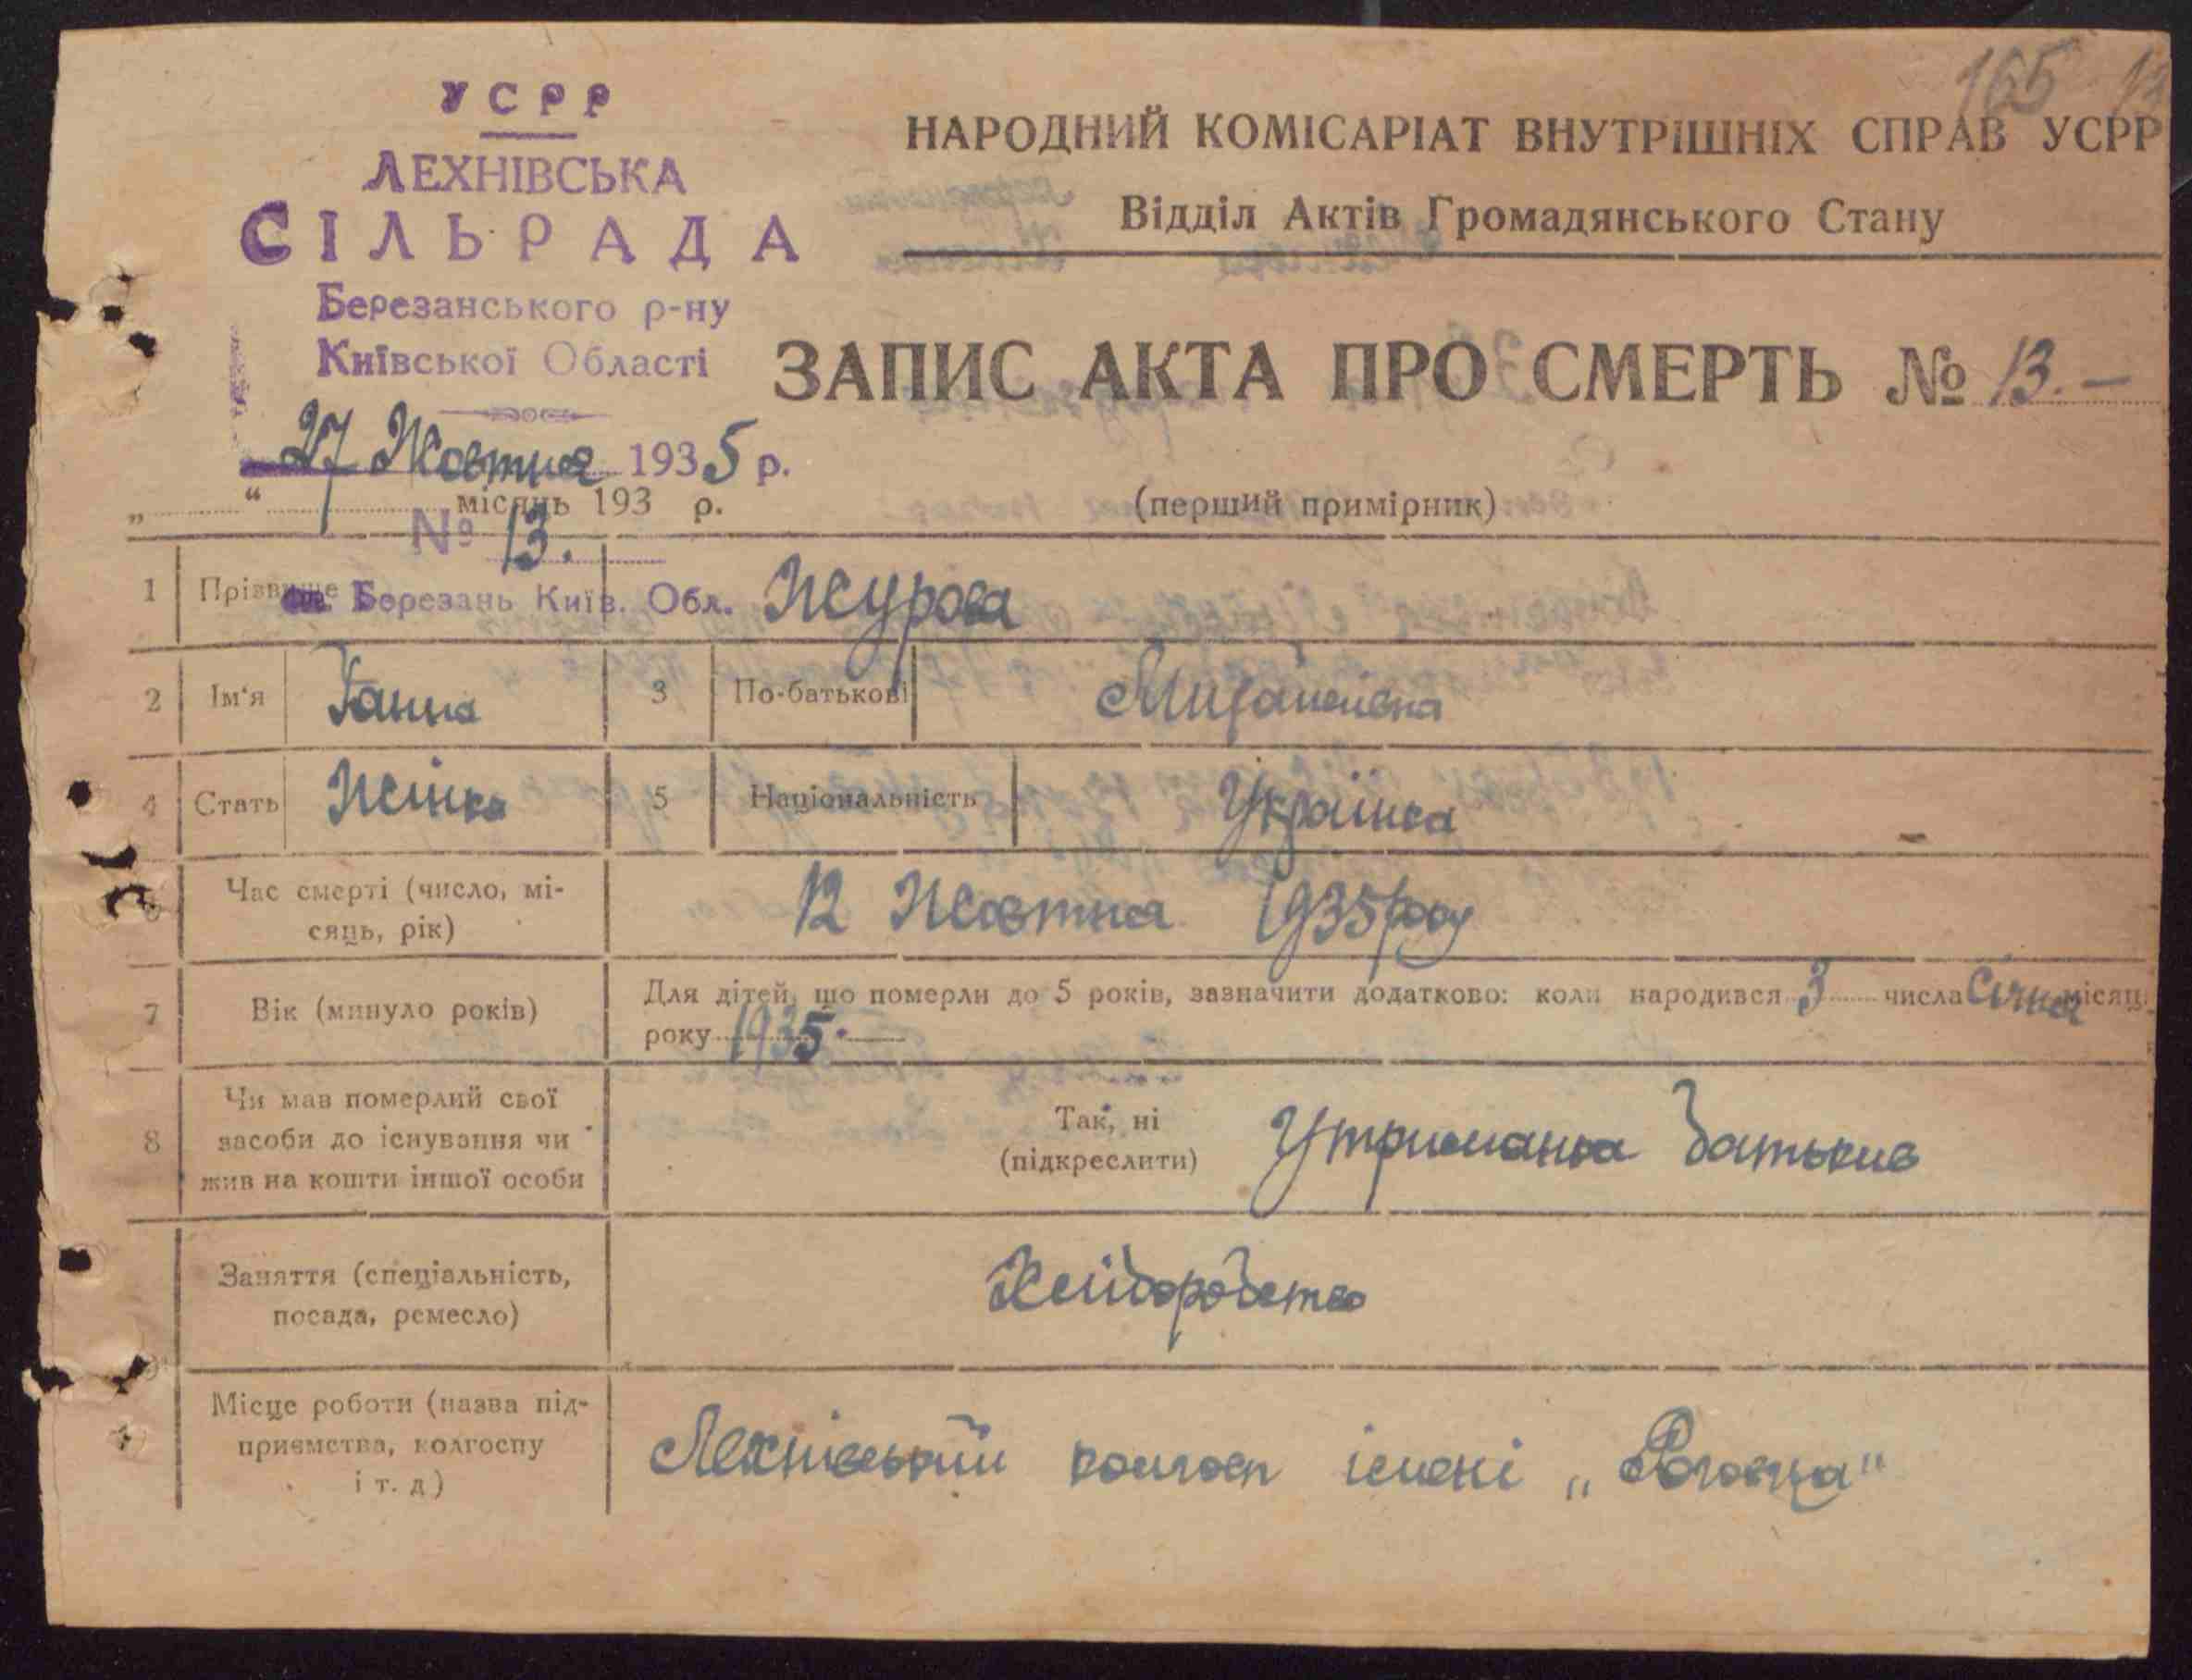 165 13
УСРР
ЛЕХНІВСЬКА
СІЛЬРАДА
Березанського р-ну
Київської Області
27 Жовтня 1935 р.
„ “ місяць 193 р.
№ 13.
Березань Київ. Обл.
НАРОДНИЙ КОМІСАРІАТ ВНУТРІШНІХ СПРАВ УСРР
Відділ Актів Громадянського Стану
ЗАПИС АКТА ПРО СМЕРТЬ № 13.–
(перший примірник)
1 Прізвище Журова
2 Ім‘я Ганна 3 По-батькові
4 Стать Жінка 5 Національність Українка
6 Час смерті (число, мі-
сяць, рік) 12 Жовтня 1935 року
7 Вік (минуло років) Для дітей, що померли до 5 років, зазначити додатково: коли народився 3 числа Січня місяц
року 1935.
8 Чи мав померлий свої
засоби до існування чи
жив на кошти іншої особи
Так, ні
(підкреслити) Утриманка батьків
Заняття (спеціальність,
посада, ремесло) Хліборобство
Місце роботи (назва під-
приємства, колгоспу
і т. д) Лехнівський колгосп імені